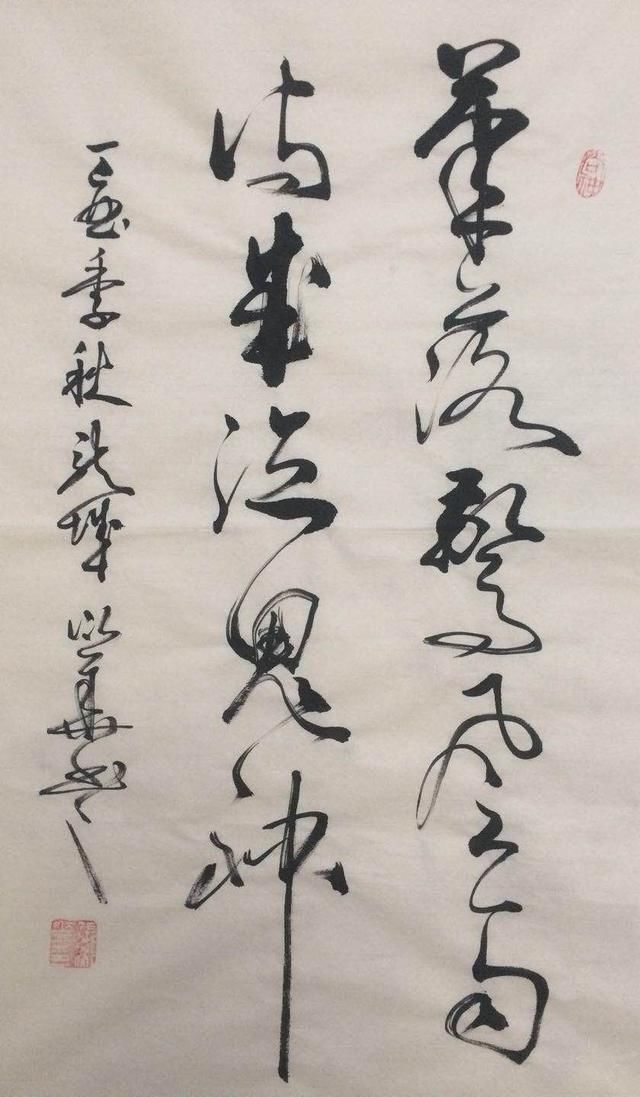 筆落驚風雨
詩成泣鬼神
丁酉季秋 城 華書